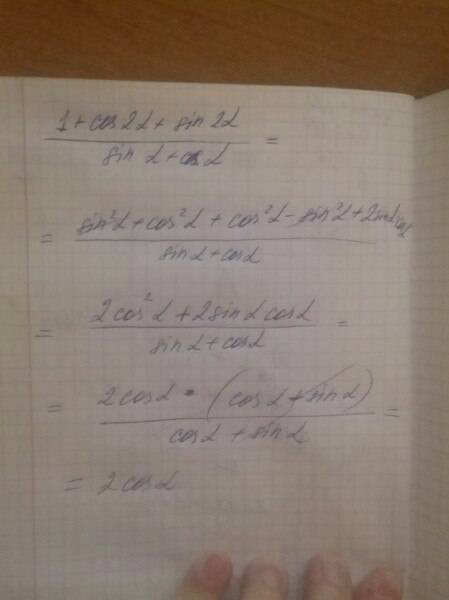 1 + cos 2α + sin 2α
sin α + cos α =
= sin²α + cos²α + cos²α - sin²α + 2sinα cosα
sinα + cosα
= 2cos²α + 2sinα cosα
sinα + cosα =
= 2cosα · (cosα + sinα)
cosα + sinα =
= 2cosα